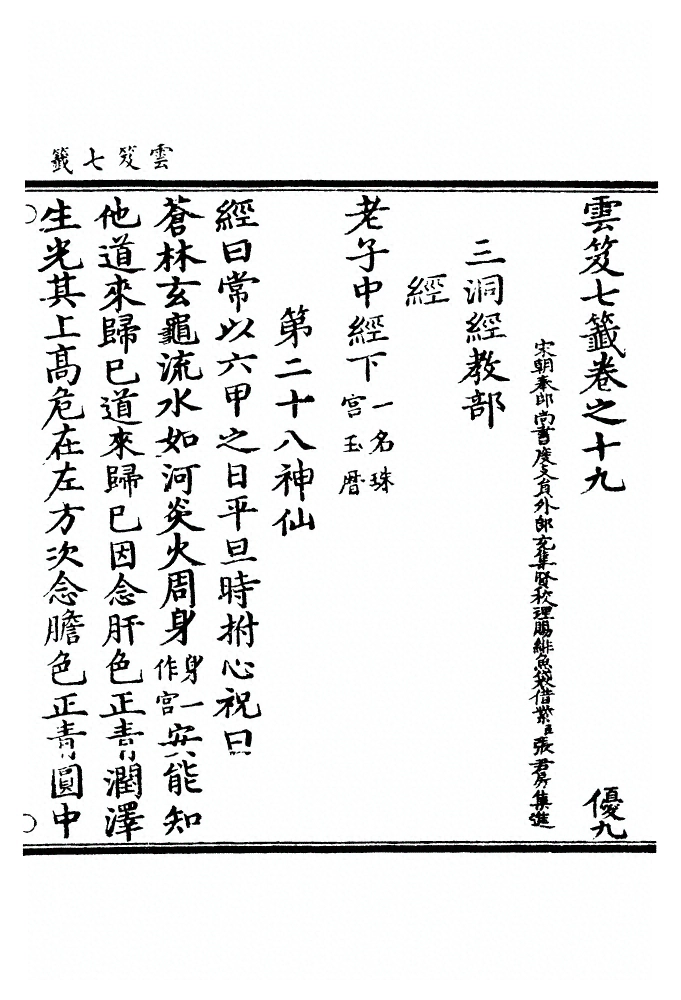 雲笈七籤
雲笈七籤卷之十九 優九
宋朝奉郎尚書度支員外郎充集賢校理賜緋魚袋借紫臣張君房集進
三洞經教部
經
老子中經下 一名珠宮玉曆
第二十八神仙
經曰常以六甲之日平旦時拊心祝曰
蒼林玄龜流水如河炎火周身 身一作宮 安能知
他道來歸已道來歸已因念肝色正青潤澤
生光其上高危在左方次念膽色正青圓中